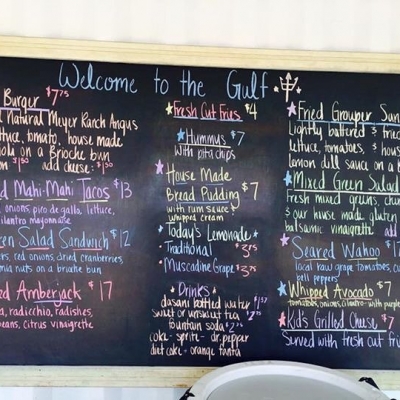 Welcome to the Gulf
Burger $7.75
Natural Meyer Ranch Angus
lettuce, tomato, house made
on a Brioche bun
add cheese $1.50
Mahi-Mahi Tacos $13
onions, pico de gallo, lettuce,
cilantro mayonnaise
Salad Sandwich $12
red onions, dried cranberries,
nuts on a brioche bun
Amberjack $17
radicchio, radishes,
beans, citrus vinaigrette
Fresh Cut Fries $4
Hummus $7
with pita chips
House Made
Bread Pudding $7
with rum sauce &
whipped cream
Today's Lemonade
Traditional $3.75
Muscadine Grape $3.75
Drinks
dasani bottled water $1.50
sweet or unsweet tea
fountain soda $2.75
coke - sprite - dr. pepper
diet coke - orange fanta
Fried Grouper
Lightly battered & fried
lettuce, tomatoes, &
lemon dill sauce on a
Mixed Green Salad
Fresh mixed greens,
& our house made gluten
balsamic vinaigrette add
Seared Wahoo $17
local raw grape tomatoes,
bell peppers
Whipped Avocado $7
tomatoes, onions, cilantro - with purple
Kid's Grilled Cheese $7
Served with fresh cut